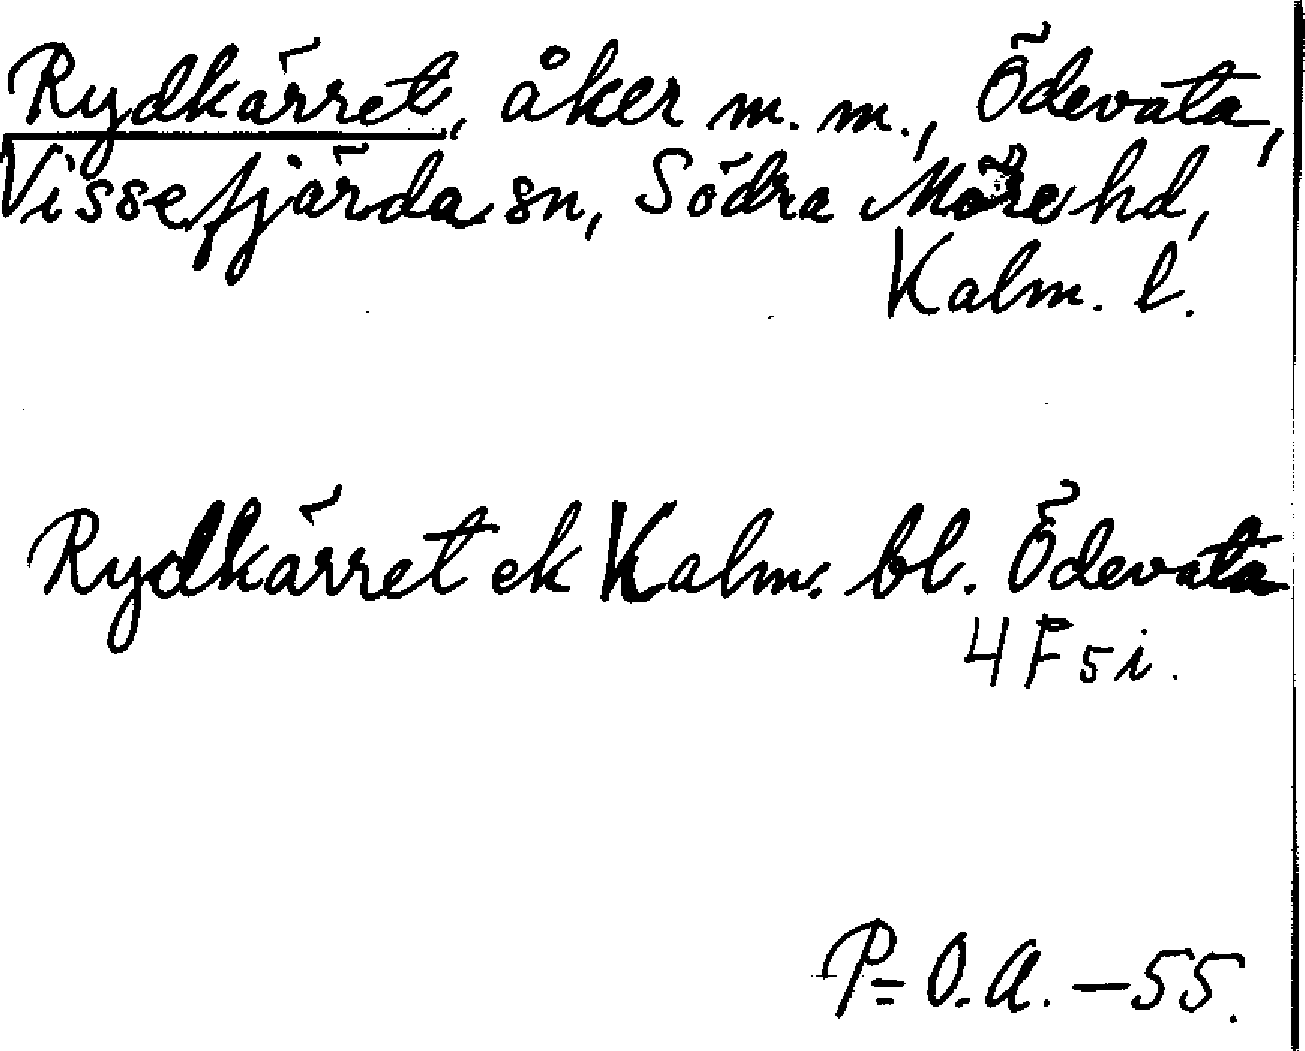 Rydkärret, åker m. m., Ödevata,
Vissefjärda sn, Södra Möre hd,
Kalm. l.
Rydkärret ek Kalm. bl. Ödevata
4 F 5 i.
P=O.A. – 55.